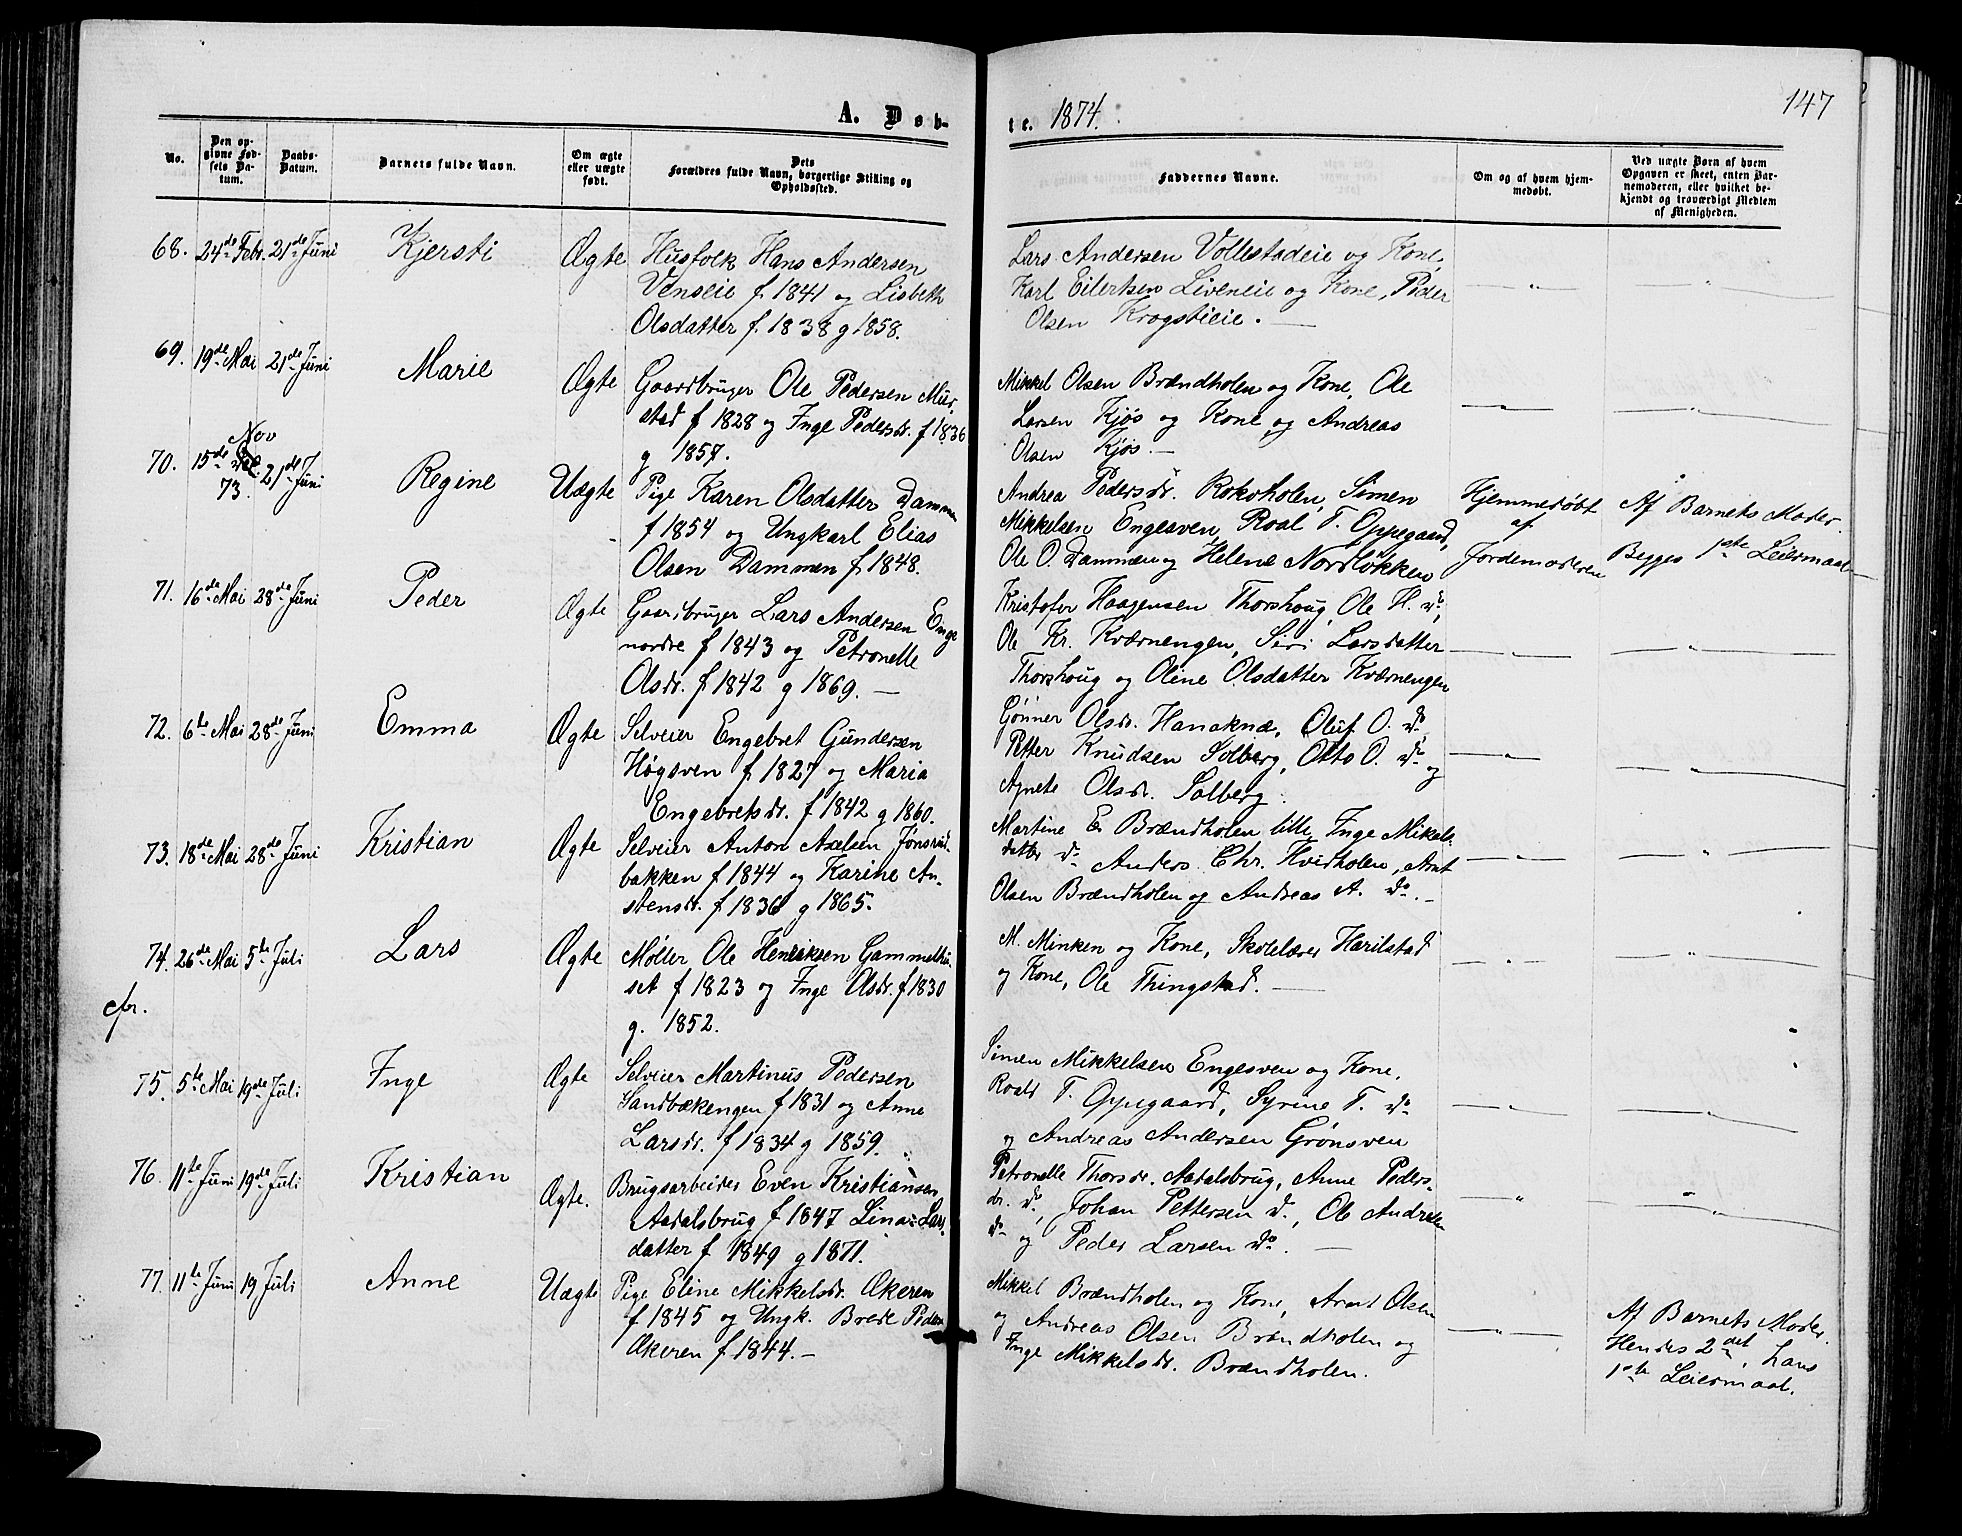 A. Døb-
te. 1874.
147
No.
Den op-
givne Fød-
sels Da-
tum.
Daabs-
Datum.
Barnets fulde Navn.
Om ægte
eller uægte
født.
Dets
Forældres fulde Navn, borgerlige Stilling og
Opholdssted.
Faddernes Navne.
Om og af hvem hjem-
medøbt.
Ved uægte Børn af hvem
Opgaven er skeet, enten Bar-
nemoderen, eller hvilket be-
kjendt og troværdigt Medlem
af Menigheden.
68. 24de Febr. 21de Juni Kjersti Ægte Husfolk Hans Andersen
Venseie f 1841 og Lisbeth
Olsdatter f. 1838 g 1858.
Lars Andersen Vollestadeie og Kone,
Karl Eilertsen Liveneie og Kone, Peder
Olsen Krogstieie. —
— " — — " —
69. 19de Mai 21de Juni Marie Ægte Gaardbruger Ole Pedersen Mur-
stad f 1828 og Inge Pedersdr. f 1836
g 1857.
Mikkel Olsen Brændholen og Kone, Ole
Larsen Kjøs og Kone og Andreas
Olsen Kjøs. —
— " — — " —
70. 15de Nov
73. 21de Juni Regine Uægte Pige Karen Olsdatter Dammen
f 1854 og Ungkarl Elias
Olsen Dammen f 1848.
Andrea Pedersdr. Rokoholen, Simen
Mikkelsen Engesven, Roal T. Oppegaard,
Ole O. Dammen og Helene Nordløkken
Hjemmedøbt
af
Jordemoderen
Af Barnets Moder.
Begges 1ste Leiermaal —
71. 16de Mai 28de Juni Peder Ægte Gaardbruger Lars Andersen Enge
nordre f 1843 og Petronelle
Olsdr. f 1842 g 1869. —
Kristofer Haagensen Thorshoug, Ole H. do,
Ole Kr. Kværnengen, Siri Larsdatter
Thorshoug og Oline Olsdatter Kværnengen
— " — — " —
72. 6te Mai 28de Juni Emma Ægte Selveier Engebret Gundersen
Høgsven f 1827 og Maria
Engebretsdr. f 1842 g 1860.
Gunner Olsdr. Hanaknæ, Oluf O. do
Petter Knudsen Solberg, Otto O. do og
Agnete Olsdr. Solberg.
— " — — " —
73. 18de Mai 28de Juni Kristian Ægte Selveier Anton Axelsen Jønsrud-
bakken f 1844 og Karine An-
stensdr. f 1836 g 1865.
Martine E. Brændholen lille, Inge Mikels-
datter do Anders Chr. Hvidholen, Arnt
Olsen Brændholen og Andreas A. do. —
— " — — " —
74. 26de Mai 5te Juli Lars Ægte Møller Ole Henriksen Gammelhu-
set f 1823 og Inge Olsdr. f 1830
g. 1852.
cfr.
M. Minken og Kone, Skolelærer Harilstad
og Kone, Ole Thingstad. —
— " — — " —
75. 5te Mai 19de Juli Inge Ægte Selveier Martinus Pedersen
Sandbækengen f 1831 og Anne
Larsdr. f 1834 g 1859.
Simen Mikkelsen Engesven og Kone,
Roald T. Oppegaard, Syrine T. do
og Andreas Andersen Grønsven
— " — — " —
76. 11te Juni 19de Juli Kristian Ægte. Brugsarbeider Even Kristiansen
Aadalsbrug f 1847 Lina Lars-
datter f 1849 g 1871.
Petronelle Thorsdr. Aadalsbrug, Anne Peders-
dr. do, Johan Pettersen d., Ole Andresen
do og Peder Larsen do. —
— " — — " —
77. 11te Juni 19 Juli Anne Uægte Pige Eline Mikkelsdr. Økeren
f 1845 og Ungk. Brede Peders.
Økeren f 1844. —
Mikkel Brændholen og Kone, Arnt Olsen
og Andreas Olsen Brændholen og
Inge Mikkelsdr. Brændholen.
— " —
Af Barnets Moder.
Hendes 2det, hans
1ste Leiermaal.